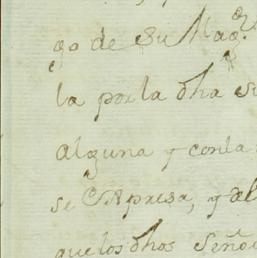 go de su Mag.d
la por la dha su
alguna y con la
se expresa, y del
que los dhos Seño